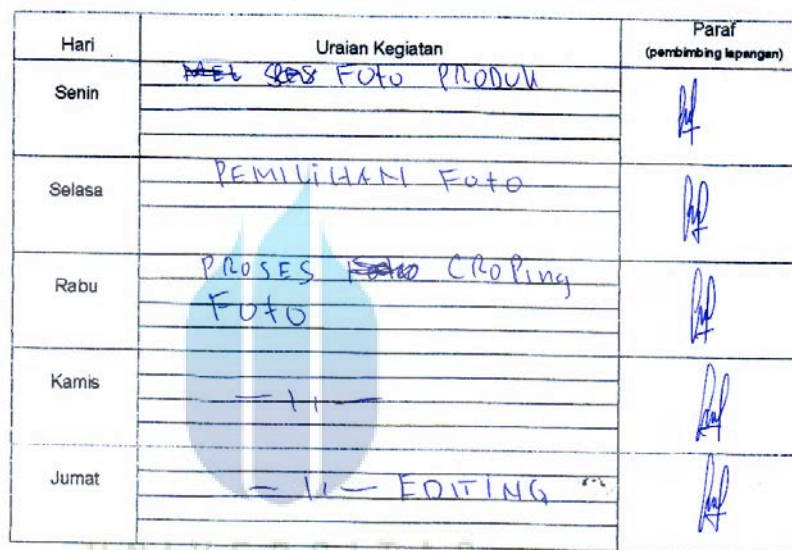 Hari Uraian Kegiatan Paraf
(pembimbing lapangan)
Senin FOTO PRODUK
Selasa PEMILIHAN FOTO
Rabu PROSES CROPing
FOTO
Kamis — 11 —
Jumat — 11 — EDITING